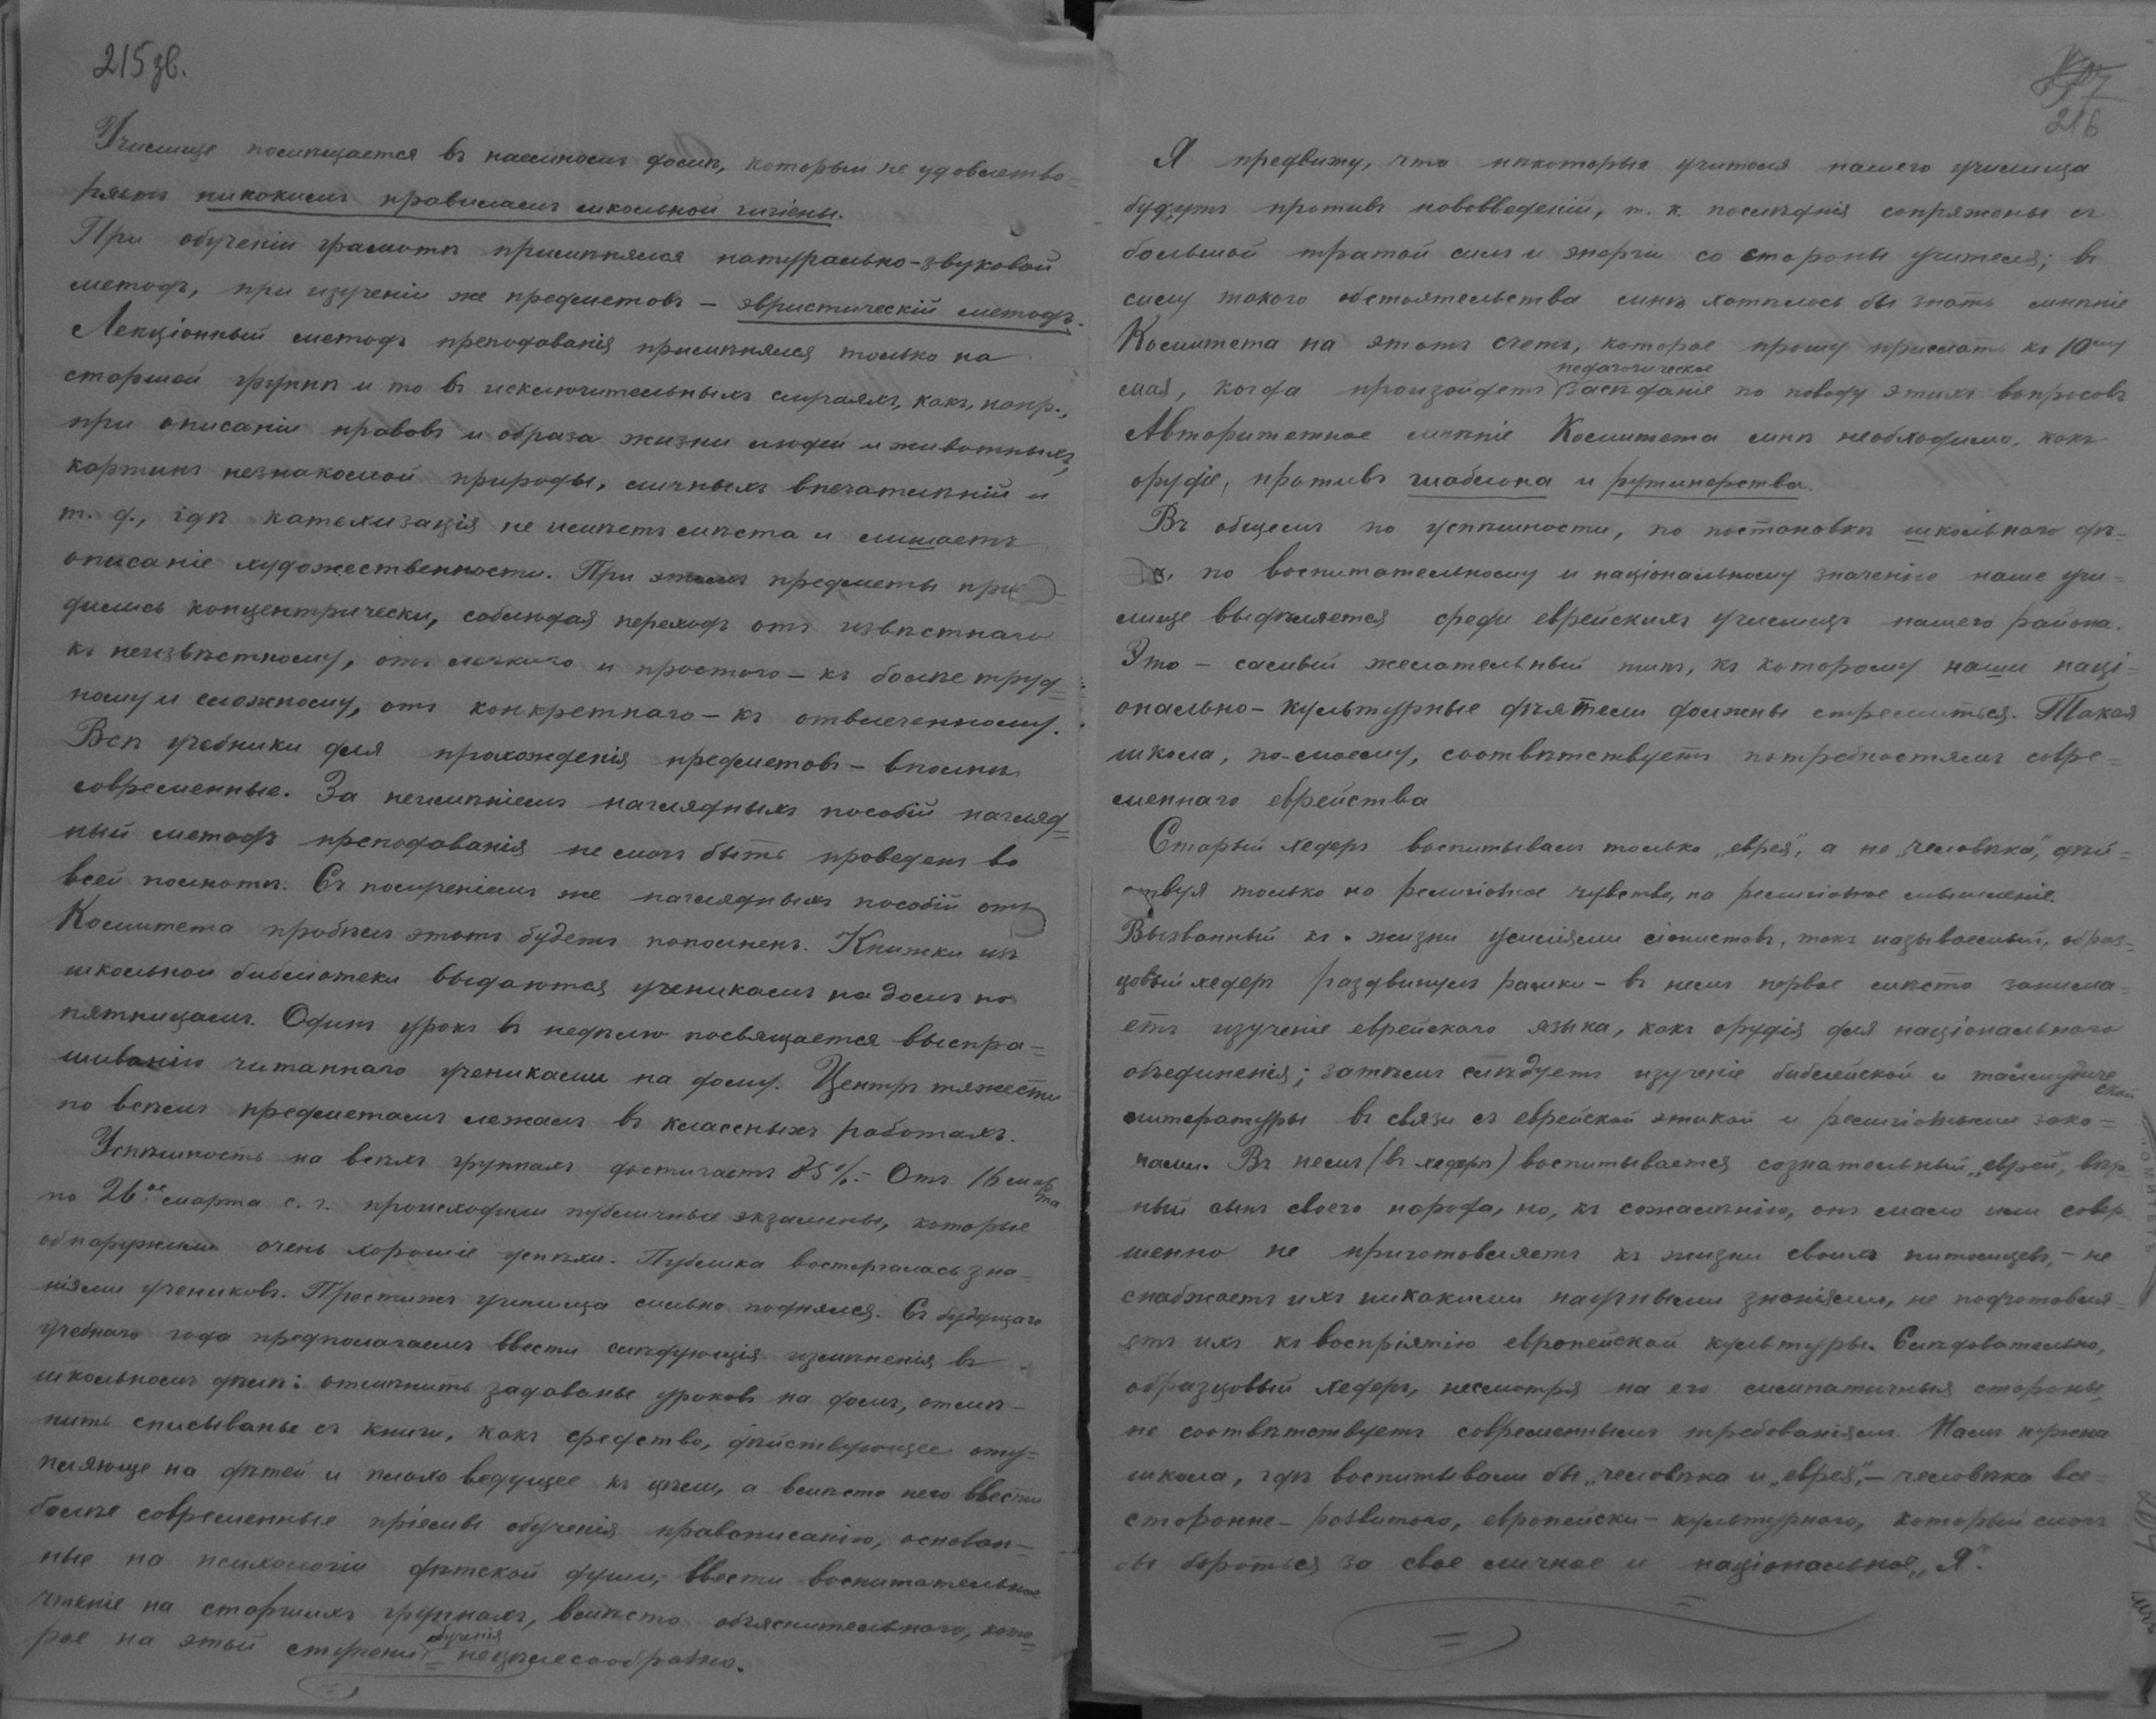 215 зв.
Училище помѣщается въ наемномъ домѣ, который не удовлетво=
ряетъ никакимъ правиламъ школьной гигіены.
При обученіи грамотѣ примѣнялся натурально-звуковой
методъ, при изученіи же предметовъ – эвристическій методъ.
Лекціонный методъ преподаванія примѣнялся только на
старшей группѣ и то въ исключительныхъ случаяхъ, какъ, напр.,
при описаніи нравовъ и образа жизни людей и животныхъ,
картинъ незнакомой природы, личныхъ впечатлѣній и
т. д., гдѣ катехизація не имѣетъ мѣста и лишаетъ
описаніе художественности. При этомъ предметы про
дились концентрически, соблюдая переходъ отъ извѣстнаго
къ неизвѣстному, отъ легкаго и простого – къ болѣе труд=
ному и сложному, отъ конкретнаго – къ отвлеченному.
Всѣ учебники для прохожденія предметовъ – вполнѣ
современные. За неимѣніемъ наглядныхъ пособій нагляд=
ный методъ преподаванія не могъ быть проведенъ во
всей полнотѣ. Съ полученіемъ же наглядныхъ пособій отъ
Комитета пробѣлъ этотъ будетъ пополненъ. Книжки изъ
школьной библіотеки выдаются ученикамъ на домъ по
пятницамъ. Одинъ урокъ въ недѣлю посвящается выспра=
шиванію читаннаго учениками на дому. Центръ тяжести
по всѣмъ предметамъ лежалъ въ классныхъ работахъ.
Успѣшность на всѣхъ группахъ достигаетъ 85%. – Отъ 16 марта
по 26ое марта с. г. происходили публичные экзамены, которые
обнаружили очень хорошіе успѣхи. Публика восторгалась зна=
ніями учениковъ. Престижъ училища сильно поднялся. Съ будущаго
учебнаго года предполагаемъ ввести слѣдующія измѣненія въ
школьномъ дѣлѣ: отмѣнить задаванье уроковъ на домъ, отмѣ-
нить списыванье съ книги, какъ средство, дѣйствующее оту=
пляюще на дѣтей и плохо ведущее къ цѣли, а вмѣсто него ввести
болѣе современные пріемы обученія правописанію, основан=
ные на психологіи дѣтской души, ввести воспитательное
чтеніе на старшихъ группахъ, вмѣсто объяснительнаго, кото=
рое на этой ступени обученія нецѣлесообразно.
216
Я предвижу, что нѣкоторые учителя нашего училища
будутъ противъ нововведеній, т. к. послѣднія сопряжены съ
большой тратой силъ и энергіи со стороны учителя; въ
силу такого обстоятельства мнѣ хотѣлось бы знать мнѣніе
Комитета на этотъ счетъ, которое прошу прислать къ 10му
мая, когда произойдетъ педагогическое засѣданіе по поводу этихъ вопросовъ
Авторитетное мнѣніе Комитета мнѣ необходимо, какъ
орудіе, противъ шаблона и рутинерства.
Въ общемъ по успѣшности, по постановкѣ школьнаго дѣ=
ла, по воспитательному и національному значенію наше учи=
лище выдѣляется среди еврейскихъ училищъ нашего района.
Это – самый желательный типъ, къ которому наши наці=
онально-культурные дѣятели должны стремиться. Такая
школа, по-моему, соотвѣтствуетъ потребностямъ совре=
меннаго еврейства
Старый хедеръ воспитывалъ только „еврея", а не „человѣка", дѣй=
ствуя только на религіозное чувство, на религіозное мышленіе.
Вызванный къ жизни усиліями сіонистовъ, такъ называемый, образ=
цовый хедеръ раздвинулъ рамки – въ немъ первое мѣсто занима=
етъ изученіе еврейскаго языка, какъ орудія для національнаго
объединенія; затѣмъ слѣдуетъ изученіе библейской и талмудической
литературы въ связи съ еврейской этикой и религіозными зако=
нами. Въ немъ (въ хедерѣ) воспитывается сознательный „еврей", вѣр=
ный сынъ своего народа, но, къ сожалѣнію, онъ мало или совер=
шенно не приготовляетъ къ жизни своихъ питомцевъ, – не
снабжаетъ ихъ никакими научными знаніями, не подготовля=
етъ ихъ къ воспріятію европейской культуры. Слѣдовательно,
образцовый хедеръ, несмотря на его симпатичныя стороны,
не соотвѣтствуетъ современнымъ требованіямъ. Намъ нужна
школа, гдѣ воспитывали бы „человѣка и „еврея", – человѣка все=
сторонне-развитого, европейски-культурнаго, который могъ
бы бороться за свое личное и національное „Я".